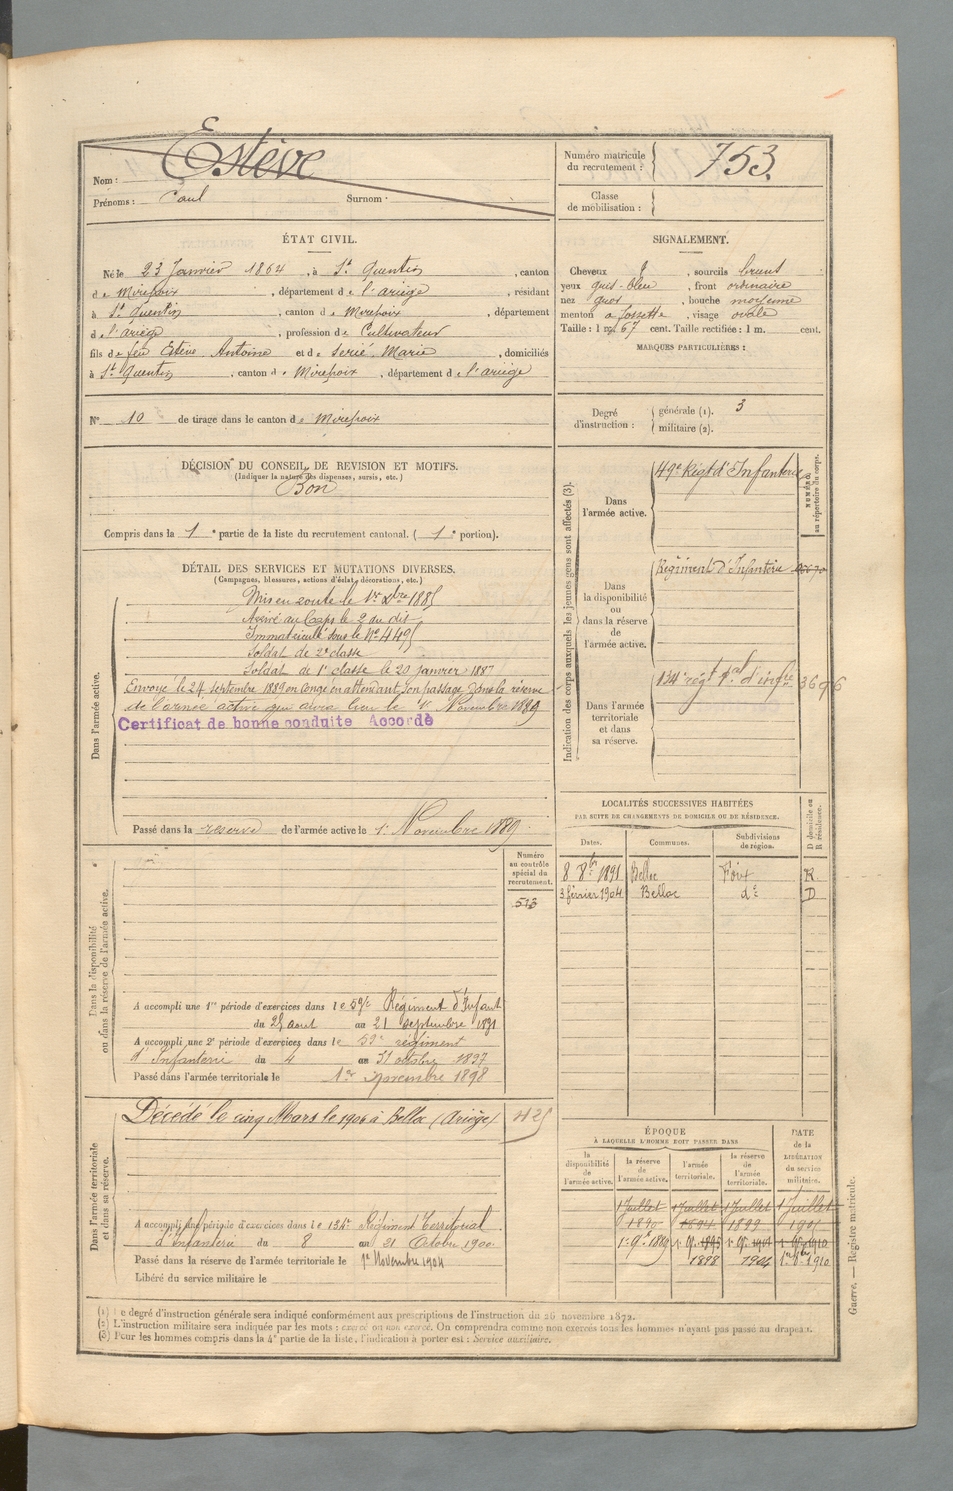 Nom : Estève
Prénoms : Paul Surnom :
Numéro matricule du recrutement : 753.
Classe de mobilisation :
ÉTAT CIVIL.
Né le 23 Janvier 1864, à St Quentin, canton
de Mirepoix, département de l'ariège, résidant
à St Quentin, canton de Mirepoix, département
d l'ariège, profession de Cultivateur
fils de feu Estève Antoine et de Serié Marie, domiciliés
à St Quentin, canton de Mirepoix, département de l'ariège
N° 10 de tirage dans le canton de Mirepoix
SIGNALEMENT.
Cheveux, sourcils bruns
yeux gris-bleu, front ordinaire
nez gros, bouche moyenne
menton a fossette, visage ovale
Taille : 1 m. 67 cent. Taille rectifiée : 1 m. cent.
MARQUES PARTICULIÈRES :
Degré d'instruction : générale (1). 3
militaire (2).
DÉCISION DU CONSEIL DE REVISION ET MOTIFS.
(Indiquer la nature des dispenses, sursis, etc.)
Bon
Compris dans la 1e partie de la liste du recrutement cantonal. (1e portion).
DÉTAIL DES SERVICES ET MUTATIONS DIVERSES.
(Campagnes, blessures, actions d'éclat, décorations, etc.)
Dans l'armée active.
Mis en route le 1er Xbre 1885
Arrivé au Corps le 2 du dit
Immatriculé sous le N° 4495
Soldat de 2e classe
Soldat de 1e classe le 20 janvier 1887
Envoyé le 24 septembre 1889 en congé en attendant son passage dans la réserve
de l'armée active qui aura lieu le 1er Novembre 1889
Certificat de bonne conduite Accordé
Passé dans la reserve de l'armée active le 1er Novembre 1889
Indication des corps auxquels les jeunes gens sont affectés (3).
NUMÉRO au répertoire du corps.
Dans l'armée active.
49e Régt d'Infanterie
Dans la disponibilité ou dans la réserve de l'armée active.
Régiment d'Infanterie
Dans l'armée territoriale et dans sa réserve.
134e régt d'infie 3676
LOCALITÉS SUCCESSIVES HABITÉES
PAR SUITE DE CHANGEMENTS DE DOMICILE OU DE RÉSIDENCE.
D domicile ou R résidence.
Dates. Communes. Subdivisions de région.
8 8bre 1891 Belloc Foix R
3 février 1904 Belloc do D
Dans la disponibilité ou dans la réserve de l'armée active.
Numéro au contrôle spécial du recrutement.
513
A accompli une 1re période d'exercices dans le 59e Régiment d'Infant
du 25 aout au 21 septembre 1891
A accompli une 2e période d'exercices dans le 59e régiment
d'Infanterie du 4 au 31 octobre 1897
Passé dans l'armée territoriale le 1er Novembre 1898
Dans l'armée territoriale et dans sa réserve.
Décédé le cinq Mars le 1906 à Belloc (Ariège)
425
A accompli une période d'exercices dans le 134e Régiment Territorial
d'Infanterie du 8 au 21 Octobre 1900
Passé dans la réserve de l'armée territoriale le 1er Novembre 1904
Libéré du service militaire le
ÉPOQUE
À LAQUELLE L'HOMME DOIT PASSER DANS
DATE de la LIBÉRATION du service militaire.
la disponibilité de l'armée active. la réserve de l'armée active. l'armée territoriale. la réserve de l'armée territoriale.
1 Juillet 1 Juillet 1 Juillet 1 Juillet
1890 1894 1899 1905
1er 9bre 1889
1898 1904 1er 9bre 1910
(1) Le degré d'instruction générale sera indiqué conformément aux prescriptions de l'instruction du 26 novembre 1872.
(2) L'instruction militaire sera indiquée par les mots : exercé ou non exercé. On comprendra comme non exercés tous les hommes n'ayant pas passé au drapeau.
(3) Pour les hommes compris dans la 4e partie de la liste, l'indication à porter est : Service auxiliaire.
Guerre. — Registre matricule.